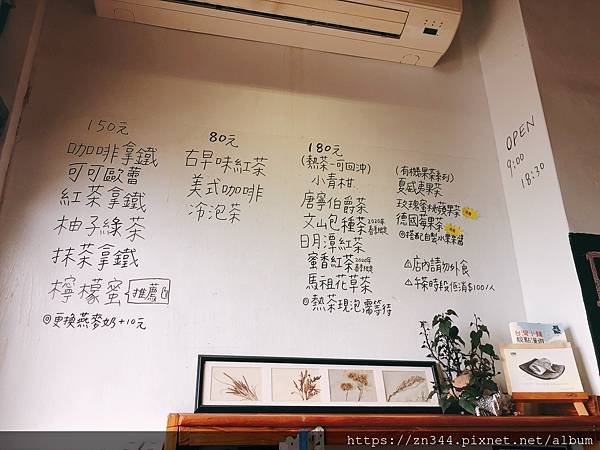 150元
咖啡拿鐵
可可歐蕾
紅茶拿鐵
柚子綠茶
抹茶拿鐵
檸檬蜜 推薦
◎更換燕麥奶+10元
80元
古早味紅茶
美式咖啡
冷泡茶
180元
(熱茶-可回沖)
小青柑
唐寧伯爵茶
文山包種茶 2020年
日月潭紅茶
蜜香紅茶 2020年
馬祖花草茶
◎熱茶現泡需等待
(有機果茶系列)
夏威夷果茶
玫瑰蜜桃蘋果茶
德國莓果茶
◎搭配自製水果果醬
⚠店內請勿外食
⚠午茶時段低消$100/人
OPEN
9:00
18:30
台灣小鎮
https://zn344.pixnet.net/album